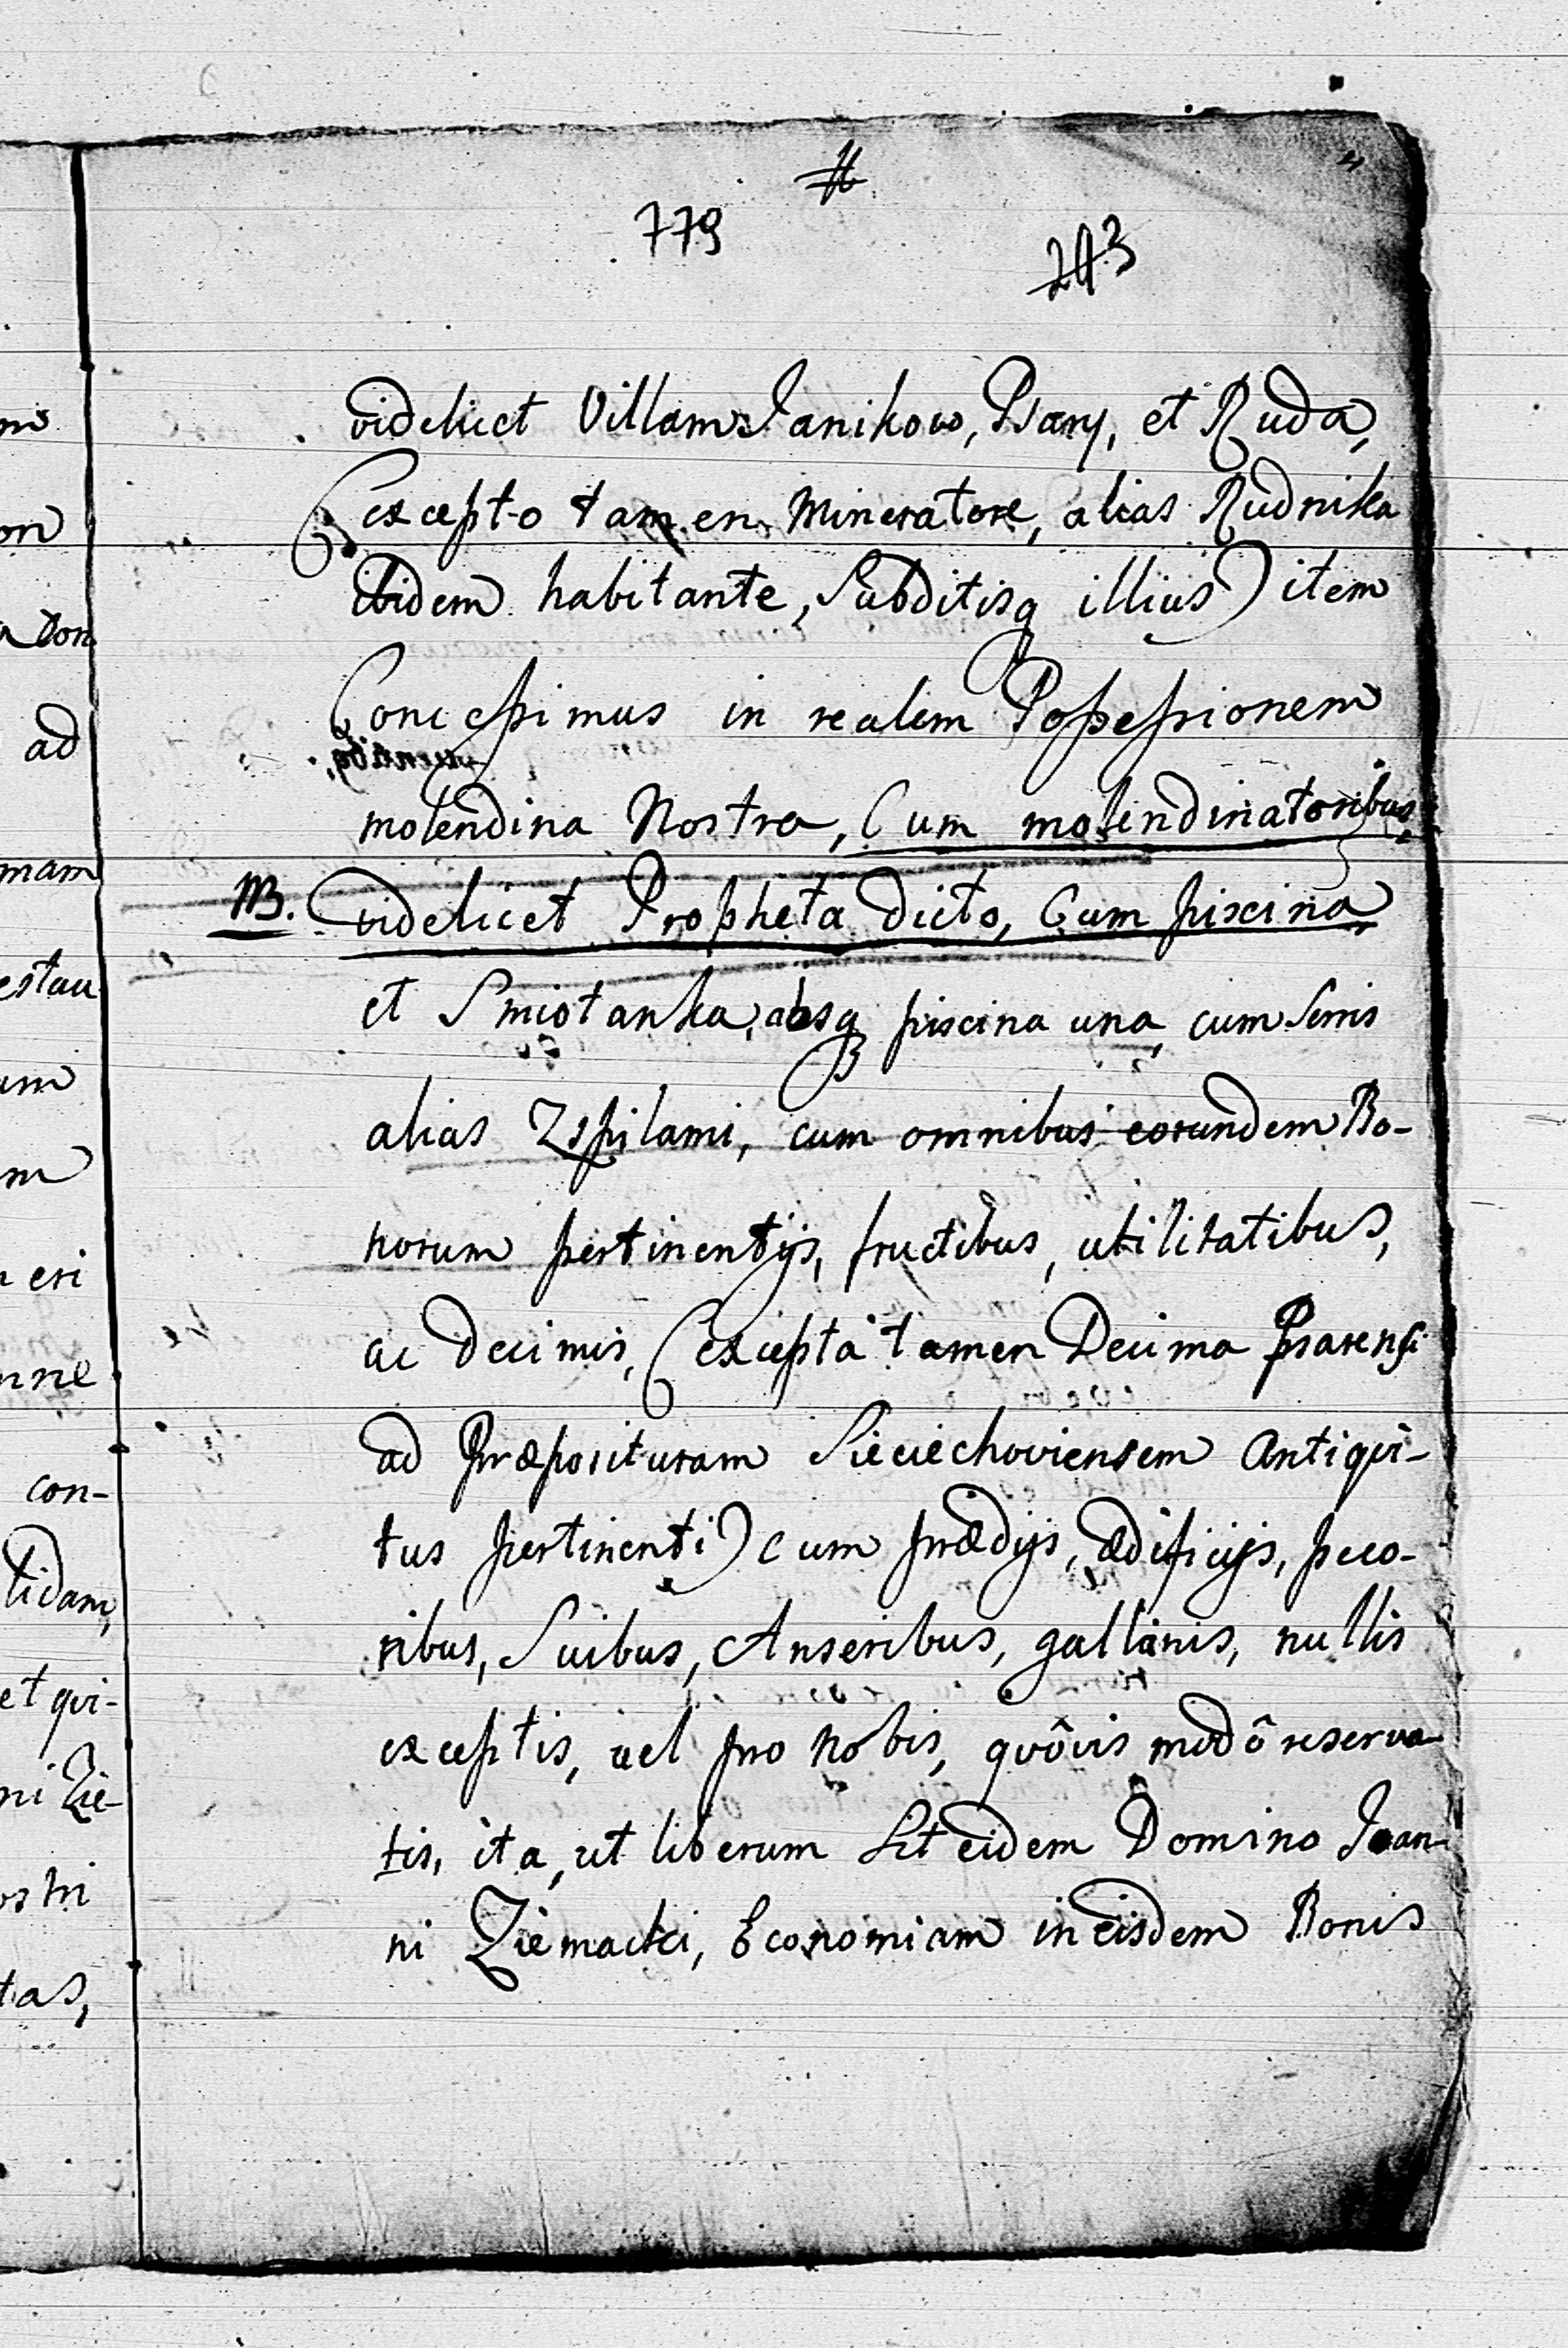 779
243
videlicet Villams Janikow, Psary, et Ruda,
(excepto tamen Mineratore, alias Rudnika
ibidem habitante, Subditisq illius) item
Concessimus in realem Possessionem
molendina Nostra, Cum molendinatoribus,
NB. videlicet Propheta dicto, Cum piscina,
et Smiotanka, absq piscina una, cum Senis
alias Zspilami, cum omnibus eorundem Bo-
norum pertinentijs, fructibus, utilitatibus,
ac Decimis, (excepta tamen Decima Psarensi
ad Præposituram Sieciechoviensem Antiqui-
tus pertinenti) cum prædijs, ædificijs, peco-
ribus, Suibus, Anseribus, gallinis, nullis
exceptis, vel pro Nobis, quôvis modô reserva-
tis, ita, ut liberum Sit eidem Domino Joan-
ni Ziemacki, Economiam in eisdem Bonis
ad
con-
tidam,
et qui-
ni Zie-
tas,